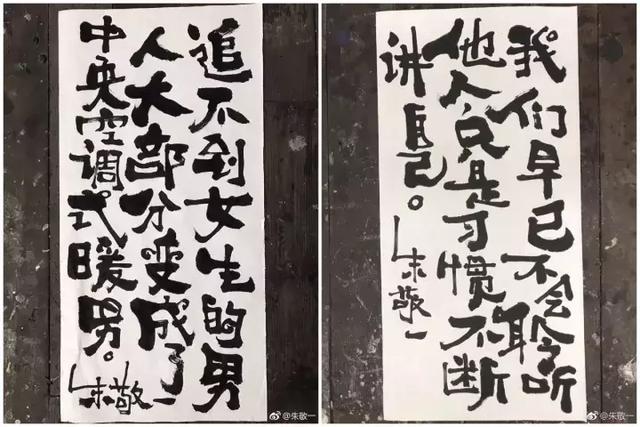 追不到女生的男
人大部分变成了
中央空调式暖男。
朱敬一
@朱敬一
我们早已不会聆听
他人只是习惯不断
讲自己。
朱敬一
@朱敬一